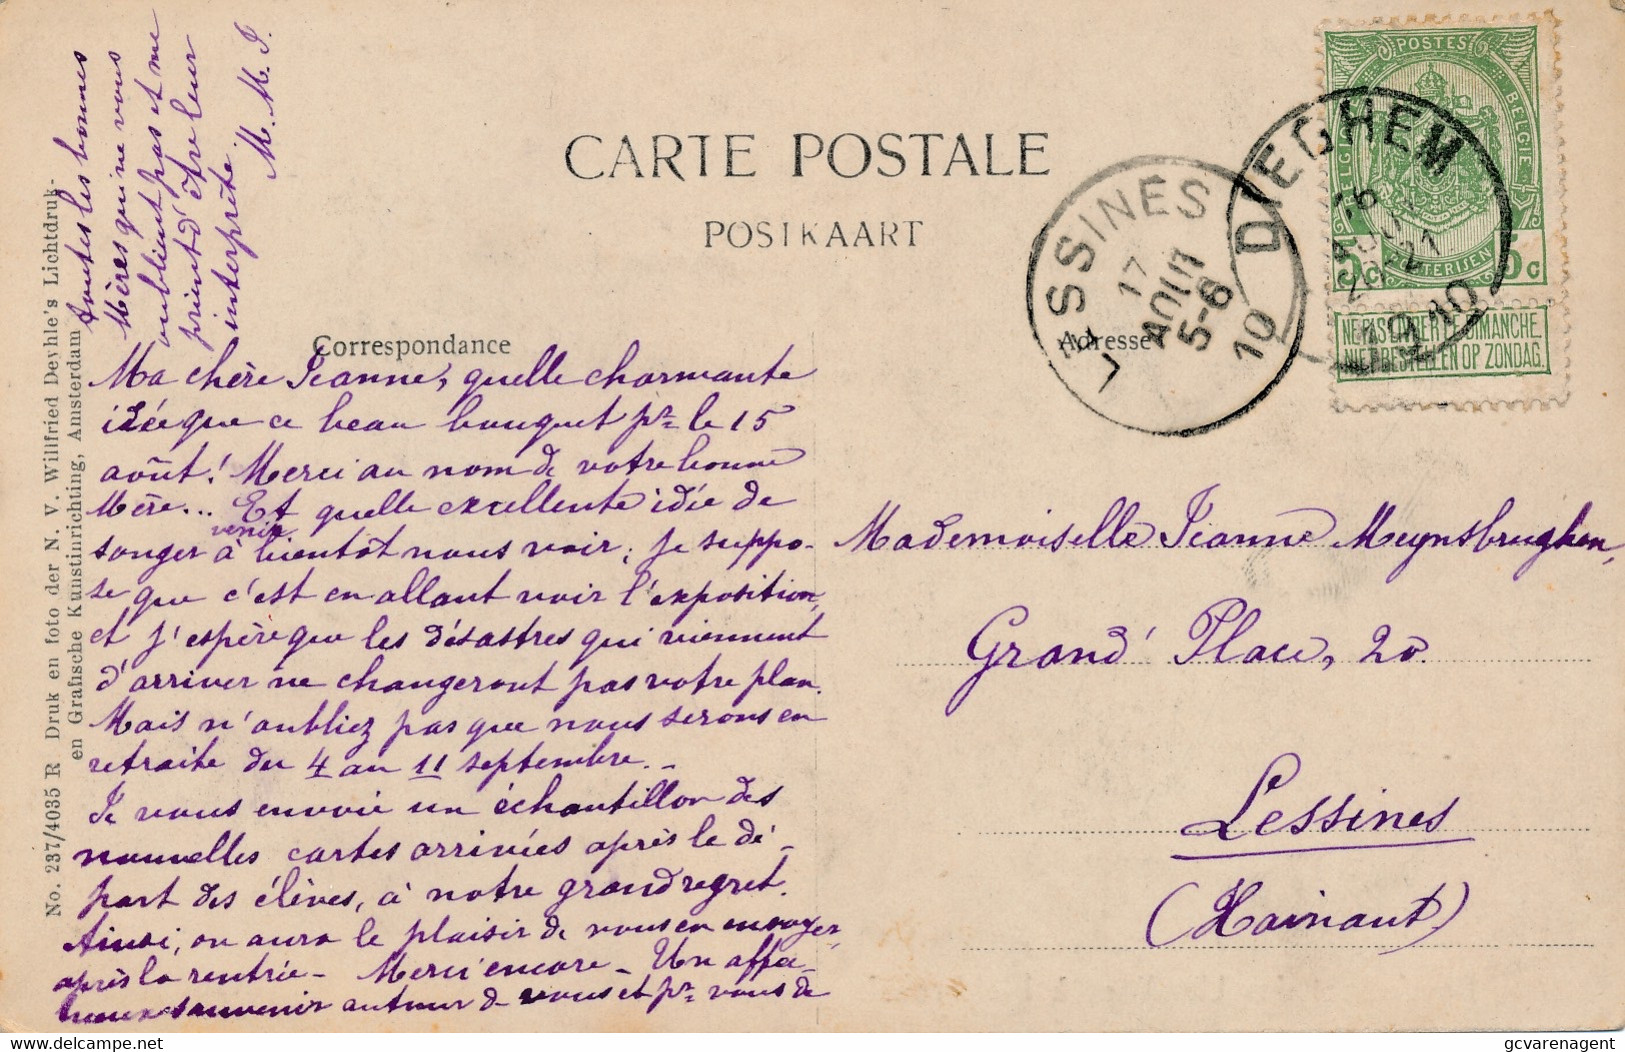 CARTE POSTALE
POSTKAART
Correspondance
Adresse
No. 237/4035 R Druk en foto der N. V. Wilfried Deyhle's Lichtdruk-
en Grafische Kunstinrichting, Amsterdam
POSTES
BELGIQUE BELGIE
5c 5c
NE PAS LIVRER LE DIMANCHE.
NIET BESTELLEN OP ZONDAG.
DIEGHEM
16
AOUT
20-21
1910
LESSINES
17
AOUT
5-6
10
Ma chère Jeanne, quelle charmante
idée que ce beau bouquet pr le 15
août! Merci au nom de votre bonne
Mère... Et quelle excellente idée de
venir
songer à bientôt nous voir; je suppo-
se que c'est en allant voir l'exposition,
et j'espère que les désastres qui viennent
d'arriver ne changeront pas votre plan.
Mais n'oubliez pas que nous serons en
retraite du 4 au 11 septembre. -
Je vous envoie un échantillon des
nouvelles cartes arrivées après le dé-
part des élèves, à notre grand regret.
Ainsi, on aura le plaisir de vous en envoyer
après la rentrée - Merci encore - Un affec-
tueux souvenir autour de vous et pr vous de
toutes les bonnes
Mères qui ne vous
oublient pas et me
prient d'être leur
interprète.
M. M. J.
Mademoiselle Jeanne Meynsbrughen,
Grand' Place, 20.
Lessines
(Hainaut)
delcampe.net
gcvarenagent